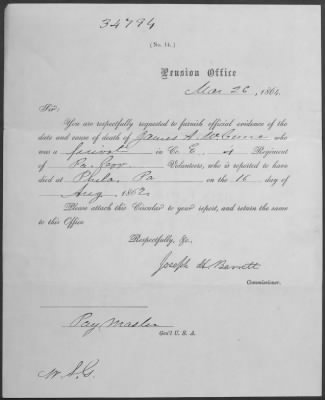 34794
(No. 14.)
Pension Office
Mar 26, 1864.
Sir:
You are respectfully requested to furnish official evidence of the
date and cause of death of James A. McCune who
was a private in Co. E. 4 Regiment
of Pa. Volunteers, who is reported to have
died at Phila. Pa on the 16 day of
Aug 1862.
Please attach this Circular to your report, and return the same
to this Office
Respectfully, &c.
Joseph H Barrett
Commissioner.
Pay Master
Gen'l U. S. A.